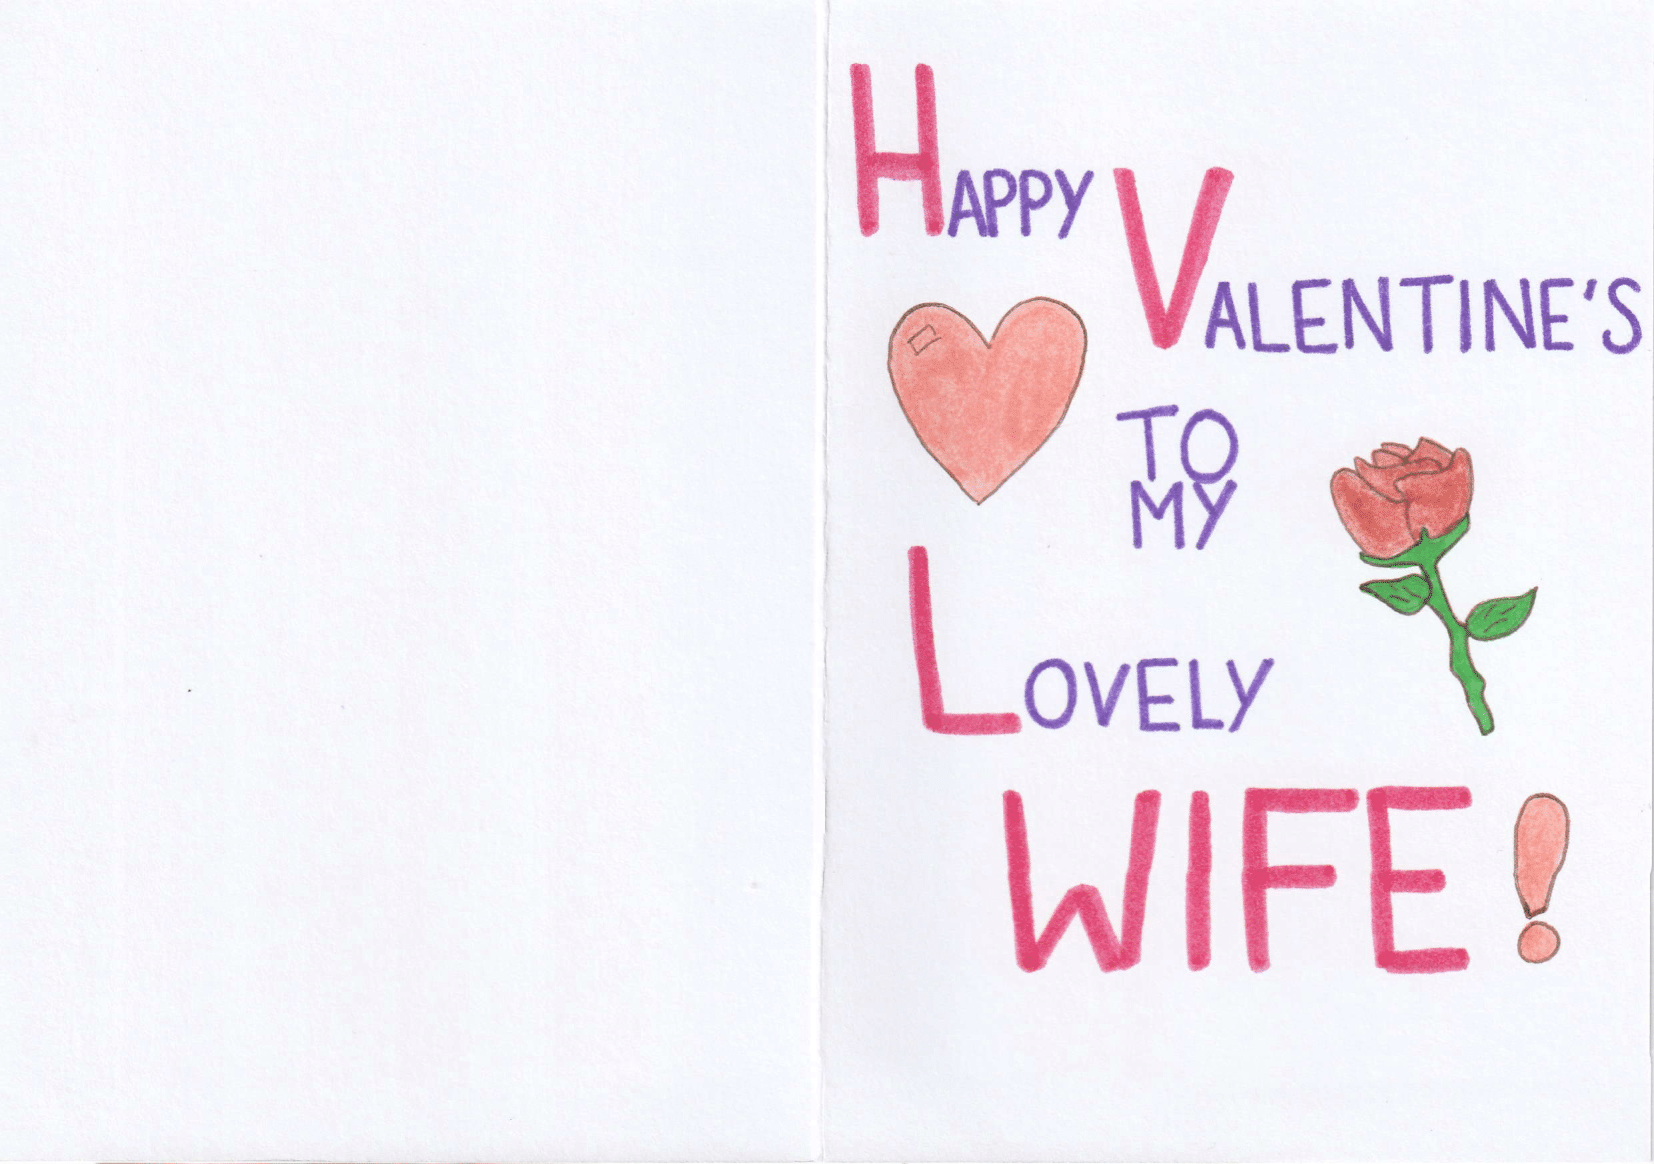 HAPPY
VALENTINE'S
TO
MY
LOVELY
WIFE!